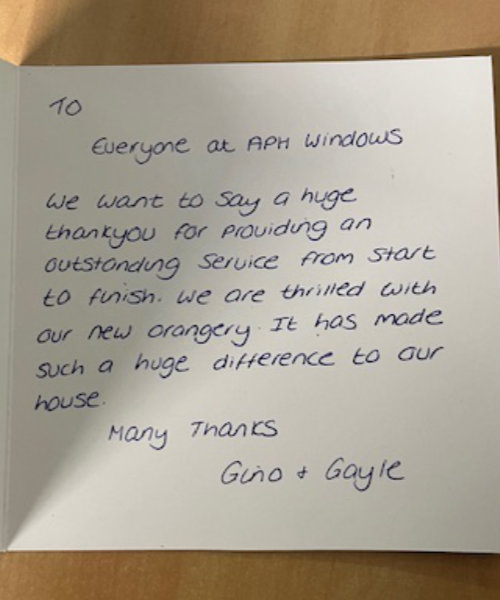 TO
Everyone at APH Windows
We want to say a huge
thankyou for providing an
outstanding service from start
to finish. We are thrilled with
our new orangery. It has made
such a huge difference to our
house.
Many Thanks
Gino + Gayle